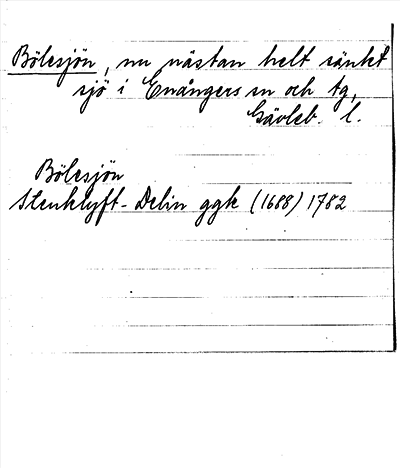 Bölesjön, nu nästan helt sänkt
sjö i Enångers sn och tg,
Gävleb. l.
Bölesjön
Stenklyft-Delin ggk (1688) 1782